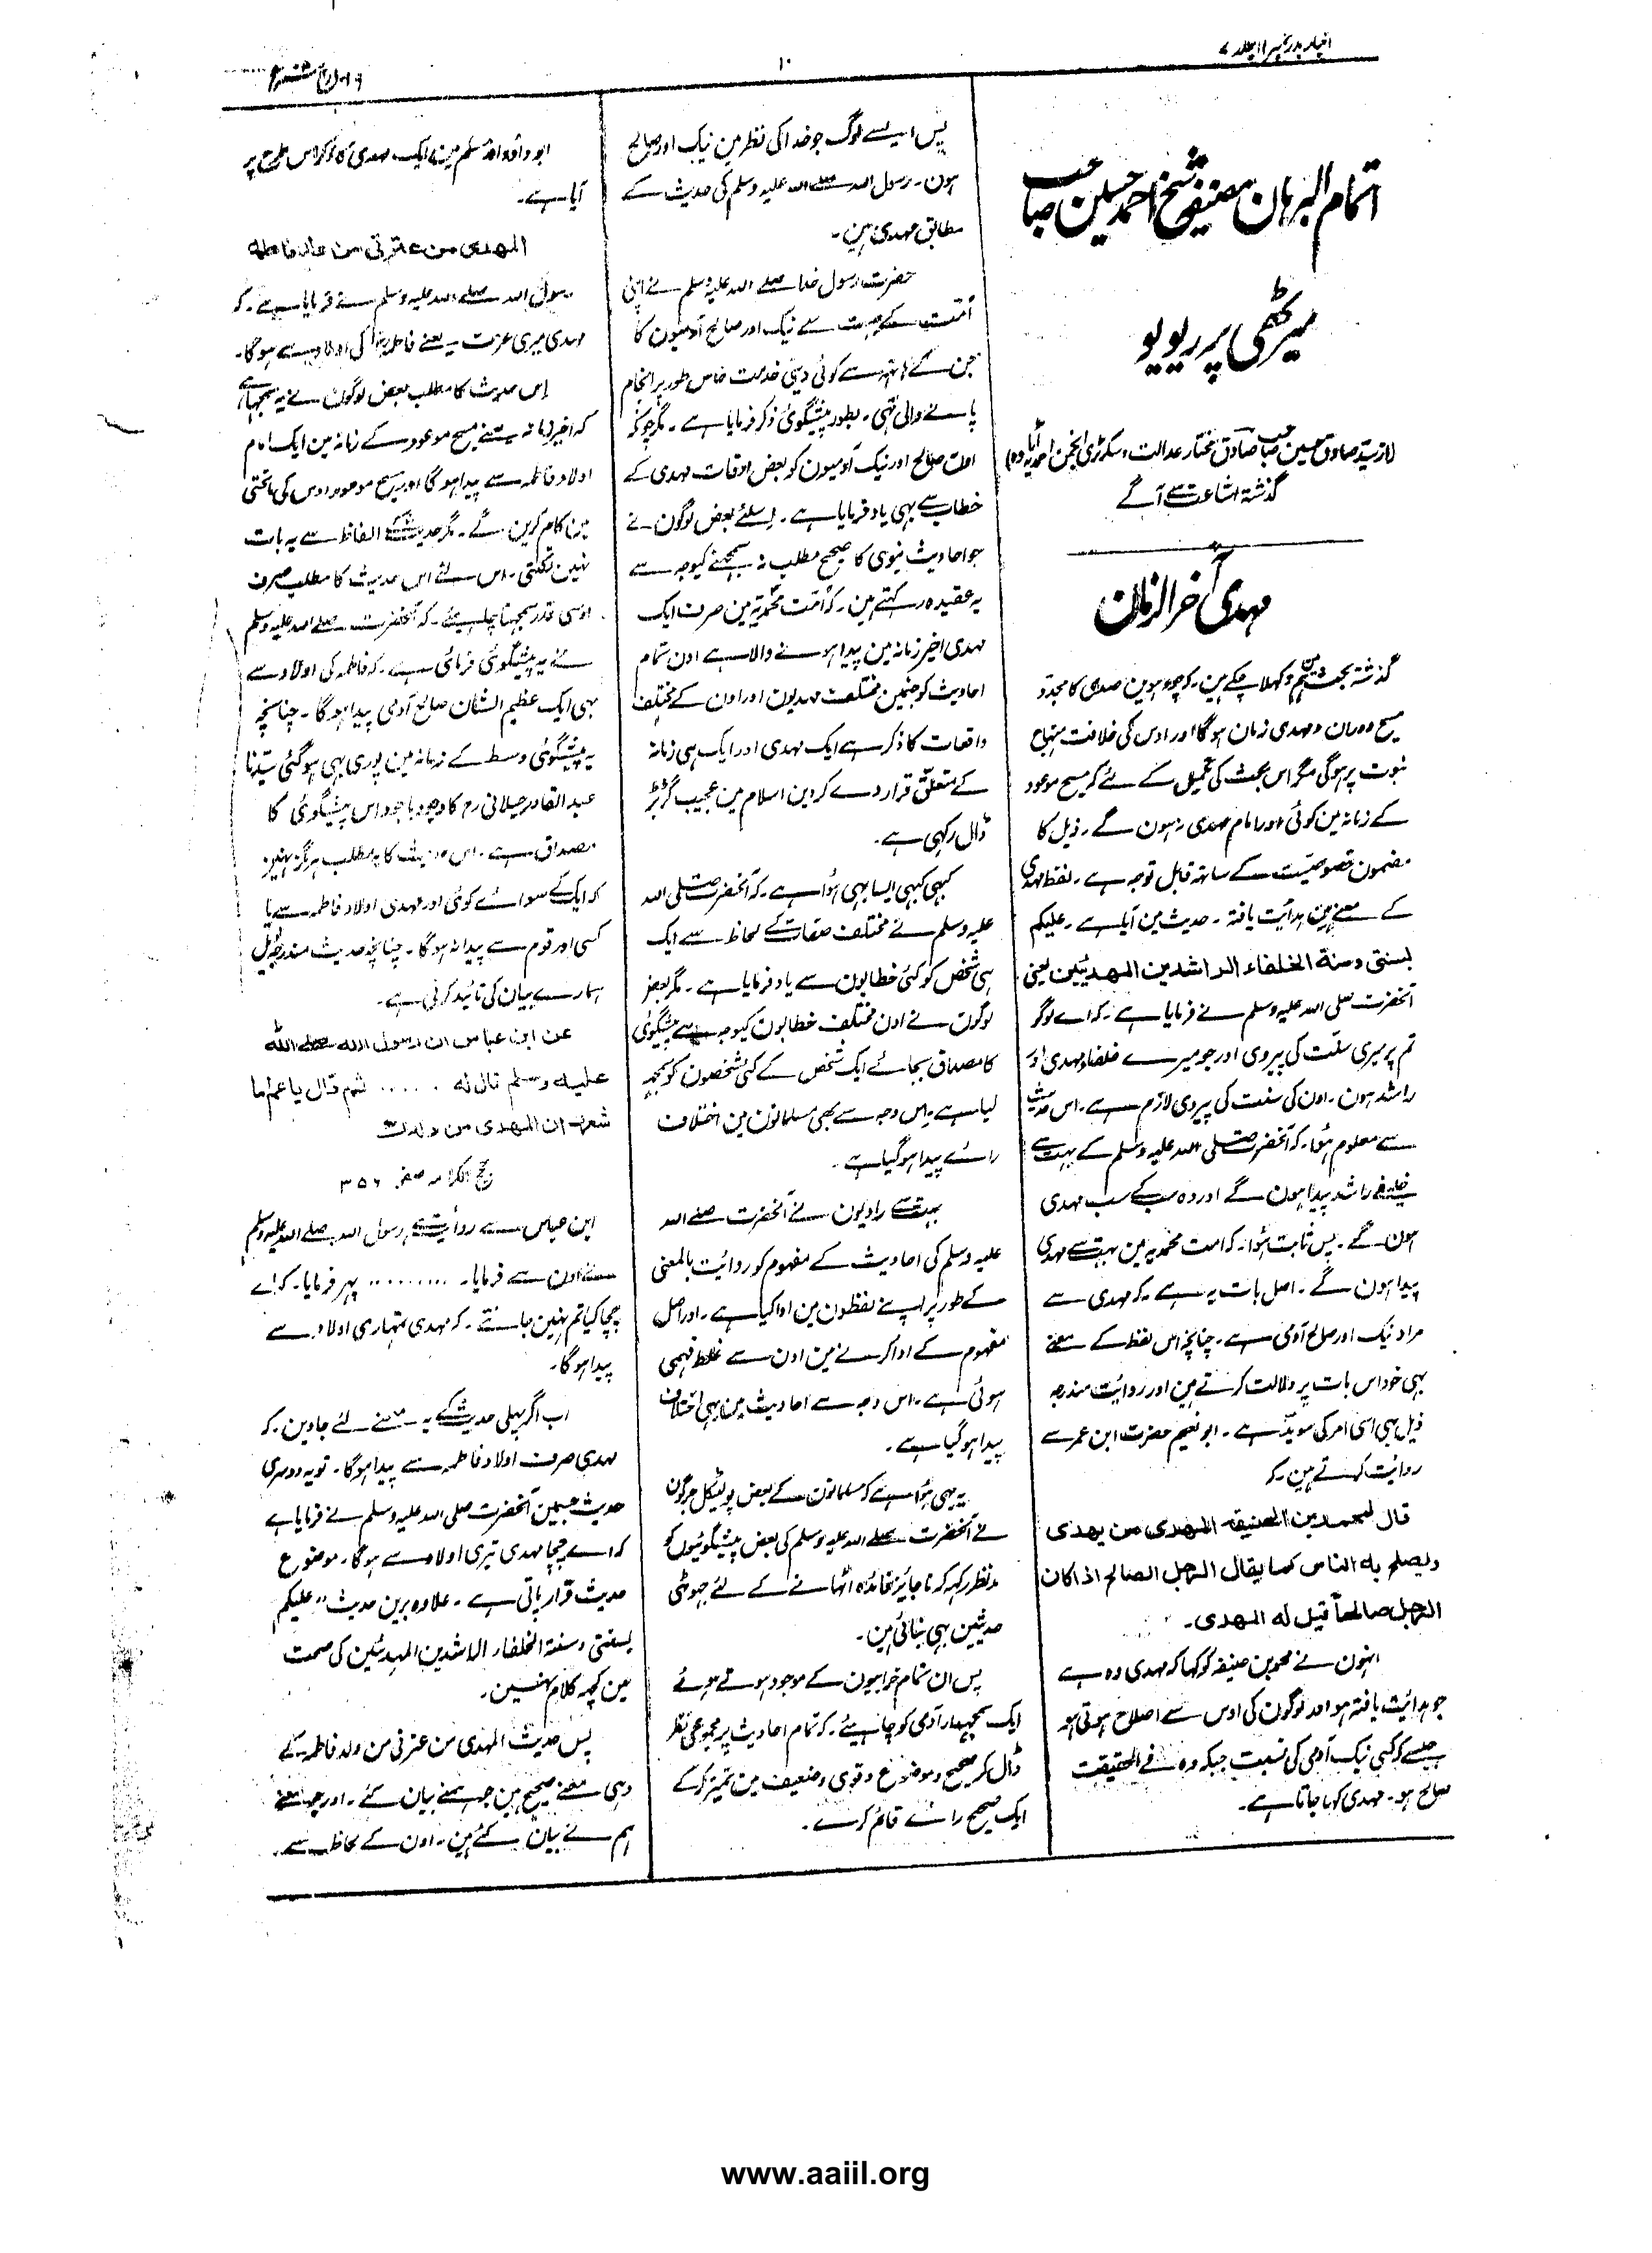 اخبار بدر نمبر ۱۱ جلد ۷
۱۰
اتمام البرہان مصنفہ شیخ احمد حسین صاحب
میرٹھی پر ریویو
(از سید صادق حسین صاحب صادق مختار عدالت و سکرٹری انجمن احمدیہ اٹاوہ)
گذشتہ اشاعت سے آگے
مہدی آخر الزمان
گذشتہ بحث مین ہم دکہلا چکے ہین۔ کہ چودہوین صدی کا مجدّد
مسیح دوران و مہدی زمان ہوگا اور اوس کی خلافت منہاج
نبوت پر ہوگی مگر اس بحث کی تکمیل کے لئے کہ مسیح موعود
کے زمانہ مین کوئی اور امام مہدی نہ ہون گے۔ ذیل کا
مضمون خصوصیّت کے ساتھ قابل توجہ ہے۔ لفظ مہدی
کے معنے ہین ہدائت یافتہ۔ حدیث مین آیا ہے۔ علیکم
بسنتی وسنة الخلفاء الراشدین المہدیّین یعنی
آنحضرت صلی اللہ علیہ وسلم نے فرمایا ہے۔ کہ اے لوگو
تم پر میری سنّت کی پیروی اور جو میرے خلفاء مہدی اور
راشد ہون۔ اون کی سنت کی پیروی لازم ہے۔ اس حدیث
سے معلوم ہوا۔ کہ آنحضرت صلی اللہ علیہ وسلم کے بہت سے
خلیفے راشد پیدا ہون گے اور وہ سب کے سب مہدی
ہون گے۔ پس ثابت ہوا۔ کہ امت محمدیہ مین بہت سے مہدی
پیدا ہون گے۔ اصل بات یہ ہے۔ کہ مہدی سے
مراد نیک اور صالح آدمی ہے۔ چنانچہ اس لفظ کے معنے
بہی خود اس بات پر دلالت کرتے ہین اور روائت مندرجہ
ذیل بہی اسی امر کی موید ہے۔ ابو نعیم حضرت ابن عمر سے
روائت کرتے ہین۔ کہ
قال لمحمد بن الحنیفة المہدی من یھدی
ویصلح بہ الناس کما یقال الرجل الصالح اذا کان
الرجل صالحاً قیل لہ المہدی۔
انہون نے محمد بن حنیفہ کو کہا کہ مہدی وہ ہے
جو ہدائت یافتہ ہو اور لوگون کی اوس سے اصلاح ہوتی ہو
جیسے کہ کسی نیک آدمی کی نسبت جبکہ وہ فے الحقیقت
صالح ہو۔ مہدی کہا جاتا ہے۔
پس ایسے لوگ جو خدا کی نظر مین نیک اور صالح
ہون۔ رسول اللہ صلے اللہ علیہ وسلم کی حدیث کے
مطابق مہدی ہین۔
حضرت رسول خدا صلے اللہ علیہ وسلم نے اپنی
اُمّت کے بہت سے نیک اور صالح آدمیون کا
جن کے ہاتہہ سے کوئی دینی خدمت خاص طور پر انجام
پانے والی تہی۔ بطور پیشگوئی ذکر فرمایا ہے۔ مگر چونکہ
اون صالح اور نیک آدمیون کو بعض اوقات مہدی کے
خطاب سے بہی یاد فرمایا ہے۔ اسلئے بعض لوگون نے
جو احادیث نبوی کا صحیح مطلب نہ سمجہنے کیوجہ سے
یہ عقیدہ رکہتے ہین۔ کہ اُمّت محمّدیہ مین صرف ایک
مہدی اخیر زمانہ مین پیدا ہونے والا ہے اون تمام
احادیث کو جنمین مختلف مہدیون اور اون کے مختلف
واقعات کا ذکر ہے ایک مہدی اور ایک ہی زمانہ
کے متعلق قرار دے کر دین اسلام مین عجیب گڑبڑ
ڈال رکہی ہے۔
کبہی کبہی ایسا بہی ہُوا ہے۔ کہ آنحضرت صلی اللہ
علیہ وسلم نے مختلف صفات کے لحاظ سے ایک
ہی شخص کو کئی خطابون سے یاد فرمایا ہے۔ مگر بعض
لوگون نے اون مختلف خطابون کیوجہ سے پیشگوئی
کا مصداق بجائے ایک شخص کے کئی شخصون کو سمجہہ
لیا ہے۔ اس وجہ سے بھی مسلمانون مین اختلاف
رائے پیدا ہوگیا ہے۔
بہت سے راویون نے آنحضرت صلے اللہ
علیہ وسلم کی احادیث کے مفہوم کو روائت بالمعنی
کے طور پر اپنے لفظون مین ادا کیا ہے۔ اور اصل
مفہوم کے ادا کرنے مین اون سے غلط فہمی
ہوئی ہے۔ اس وجہ سے احادیث مین بہی اختلاف
پیدا ہوگیا ہے۔
یہ بہی ہُوا ہے کہ مسلمانون کے بعض پولٹیکل جرگون
نے آنحضرت صلے اللہ علیہ وسلم کی بعض پیشگوئیون کو
مدنظر رکہہ کر ناجایز فائدہ اٹہانے کے لئے جہوٹی
حدیثین بہی بنائی ہین۔
پس ان تمام خرابیون کے موجود ہوتے ہوئے
ایک سمجہدار آدمی کو چاہیئے۔ کہ تمام احادیث پر مجموعی نظر
ڈال کر صحیح و موضوع و قوی و ضعیف مین تمیز کر کے
ایک صحیح رائے قائم کرے۔
ابو داؤد اور مسلم مین ایک مہدی کا ذکر اس طرح پر
آیا ہے۔
المہدی من عترتی من ولد فاطمہ
رسول اللہ صلے اللہ علیہ وسلم نے فرمایا ہے۔ کہ
مہدی میری عترت یعنے فاطمہ کی اولاد سے ہوگا۔
اس حدیث کا مطلب بعض لوگون نے یہ سمجہا ہے
کہ اخیر زمانہ یعنے مسیح موعود کے زمانہ مین ایک امام
اولاد فاطمہ سے پیدا ہوگا اور مسیح موعود اوس کی ماتحتی
مین کام کرین گے۔ مگر حدیث کے الفاظ سے یہ بات
نہین نکلتی۔ اس لئے اس حدیث کا مطلب صرف
اوسی قدر سمجہنا چاہیئے۔ کہ آنحضرت صلے اللہ علیہ وسلم
نے یہ پیشگوئی فرمائی ہے۔ کہ فاطمہ کی اولاد سے
بہی ایک عظیم الشان صالح آدمی پیدا ہوگا۔ چنانچہ
یہ پیشگوئی وسط کے زمانہ مین پوری بہی ہوگئی سیّدنا
عبد القادر جیلانی رح کا وجود باجود اس پیشگوئی کا
مصداق ہے۔ اس حدیث کا یہ مطلب ہرگز نہین
کہ ایک کے سوائے کوئی اور مہدی اولاد فاطمہ سے یا
کسی اور قوم سے پیدا نہ ہوگا۔ چنانچہ حدیث مندرجہ ذیل
ہمارے بیان کی تائید کرتی ہے۔
عن ابن عباس ان رسول اللہ صلے اللہ
علیہ وسلم قال لہ ...... ثم قال یا عم اما
شعرت ان المہدی من ولدک
حجج الکرامہ صفحہ ۳۵۶
ابن عباس سے روائت ہے رسول اللہ صلے اللہ علیہ وسلم
نے اون سے فرمایا۔ ......... پہر فرمایا۔ کہ اے
چچا کیا تم نہین جانتے۔ کہ مہدی تمہاری اولاد سے
پیدا ہوگا۔
اب اگر پہلی حدیث کے یہ معنے لئے جاوین۔ کہ
مہدی صرف اولاد فاطمہ سے پیدا ہوگا۔ تو یہ دوسری
حدیث جسمین آنحضرت صلی اللہ علیہ وسلم نے فرمایا ہے
کہ اے چچا مہدی تیری اولاد سے ہوگا۔ موضوع
حدیث قرار پاتی ہے۔ علاوہ برین حدیث "علیکم
بسنتی وسنة الخلفاء الراشدین المہدیّین کی صحت
مین کچہہ کلام نہین۔
پس حدیث المہدی من عترتی من ولد فاطمہ کے
وہی معنے صحیح ہین جو ہمنے بیان کئے۔ اور جو معنے
ہم نے بیان کئے ہین۔ اون کے لحاظ سے
www.aaiil.org